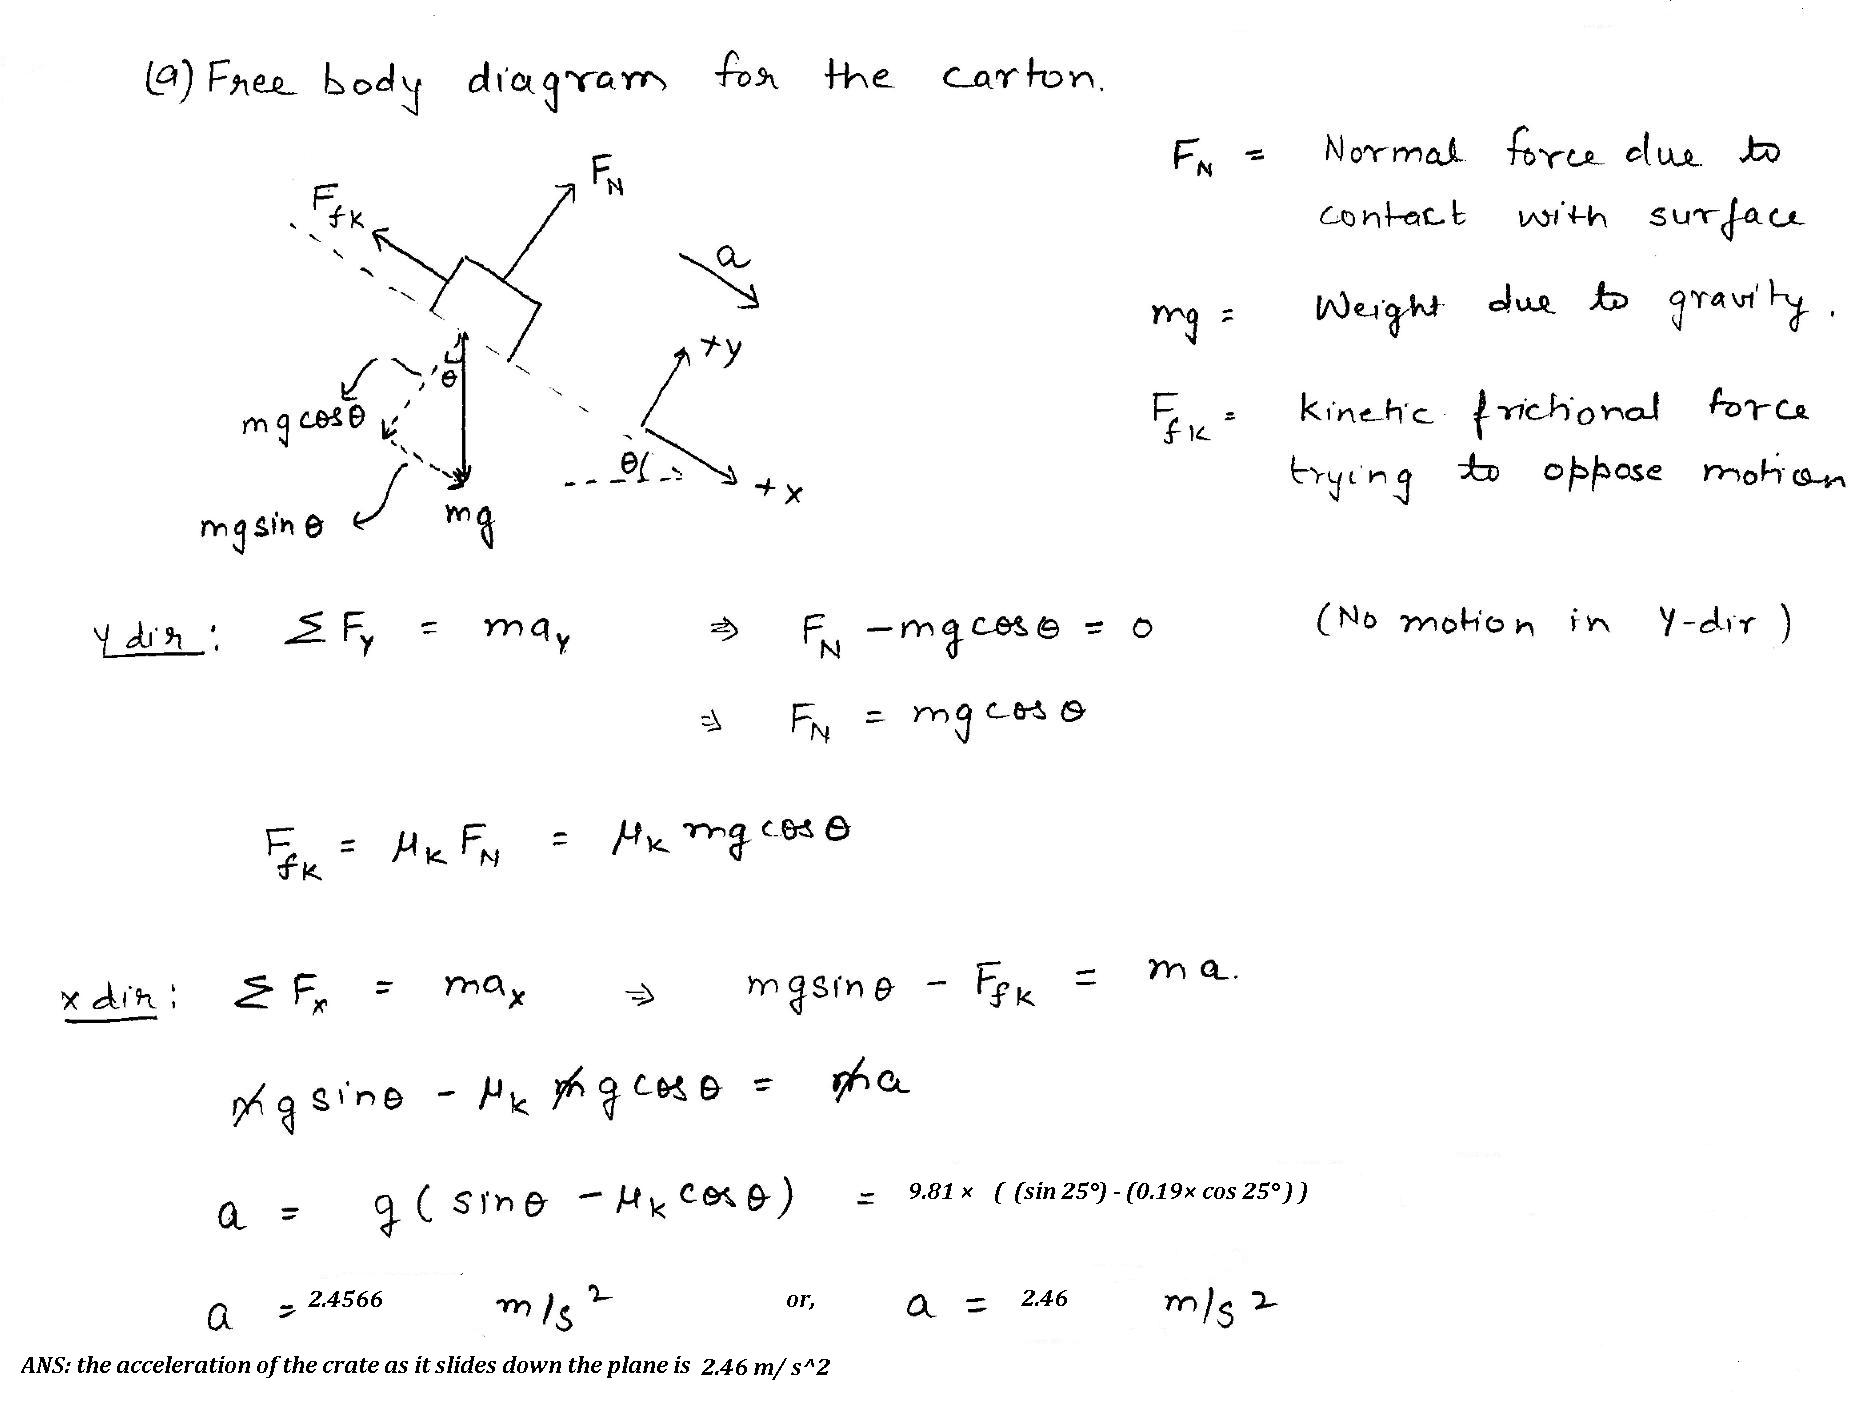 (a) Free body diagram for the carton.
F_N = Normal force due to
contact with surface
mg = Weight due to gravity.
F_fk = kinetic frictional force
trying to oppose motion
F_N
F_fk
a
+y
θ
mg cosθ
θ
+x
mg sinθ
mg
Y dir: ΣF_y = ma_y ⇒ F_N - mg cosθ = 0 (No motion in Y-dir)
⇒ F_N = mg cosθ
F_fk = μ_k F_N = μ_k mg cosθ
x dir: ΣF_x = ma_x ⇒ mg sinθ - F_fk = ma.
mg sinθ - μ_k mg cosθ = ma
a = g(sinθ - μ_k cosθ) = 9.81 × ( (sin 25°) - (0.19× cos 25°))
a = 2.4566 m/s² or, a = 2.46 m/s²
ANS: the acceleration of the crate as it slides down the plane is 2.46 m/ s^2